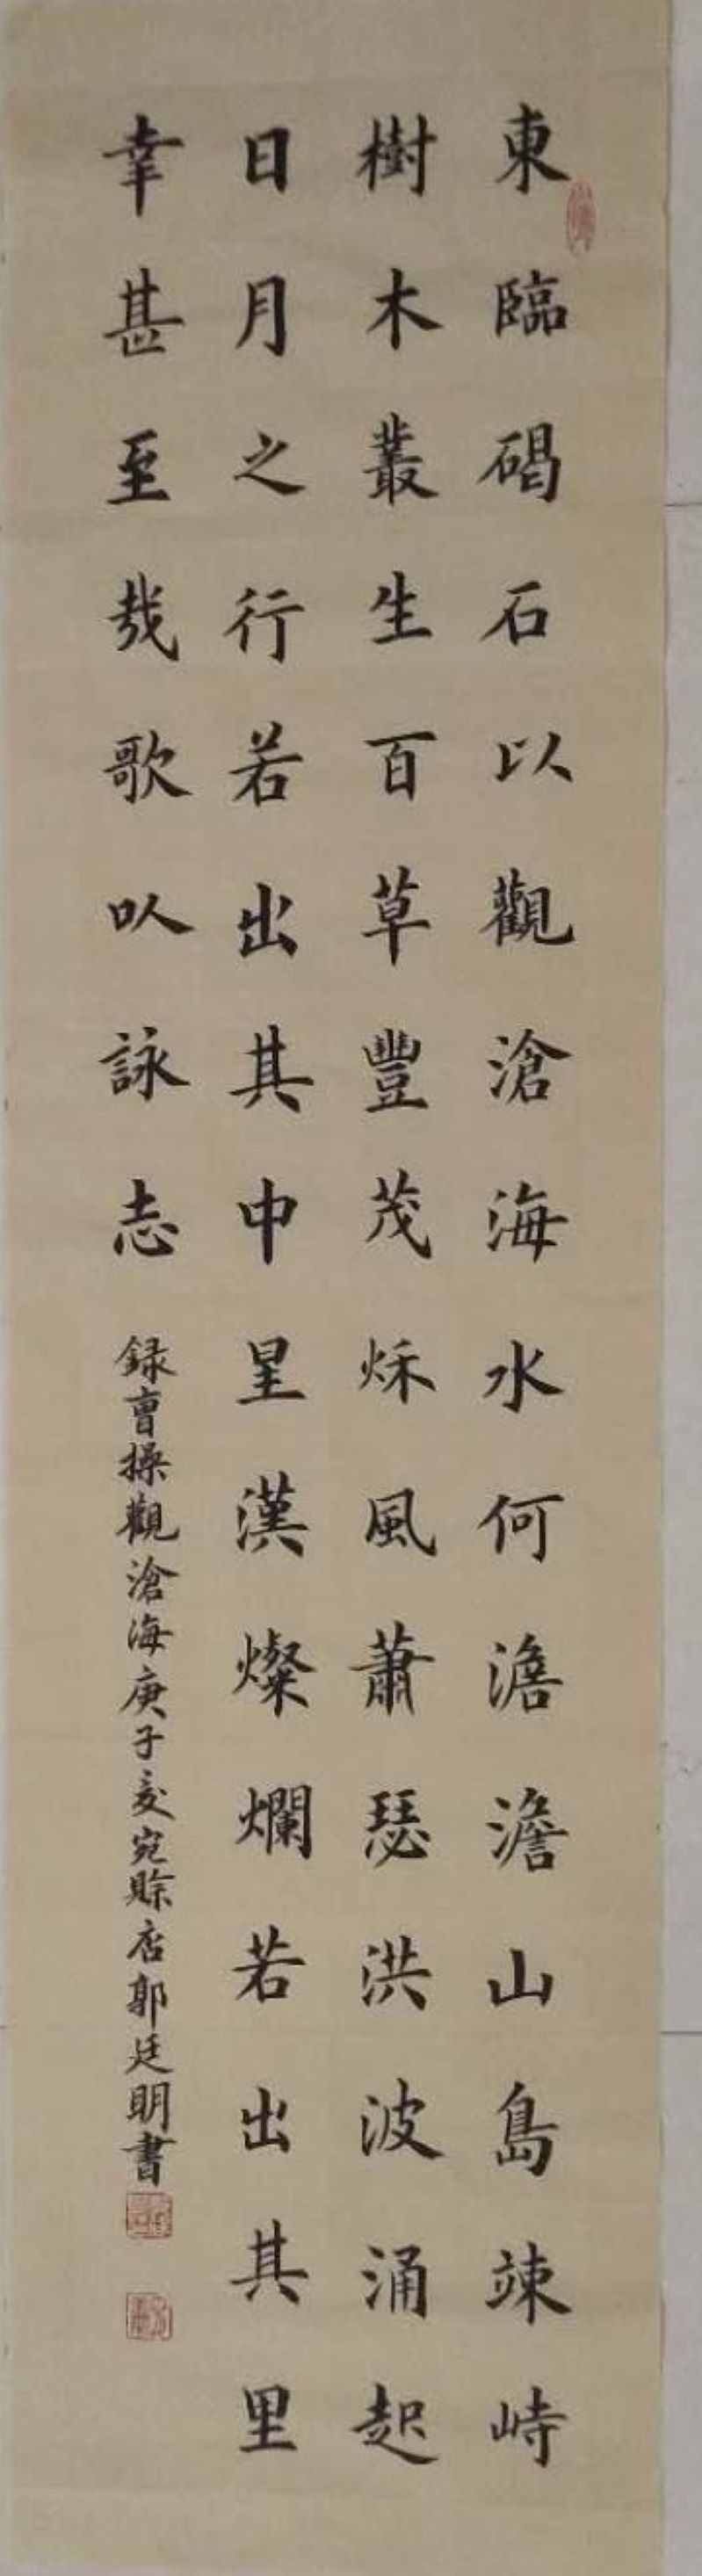 東臨碣石以觀滄海水何澹澹山島竦峙
樹木叢生百草豐茂秌風蕭瑟洪波涌起
日月之行若出其中星漢燦爛若出其里
幸甚至哉歌以詠志
録曹操觀滄海庚子夏宛賒店郭廷明書